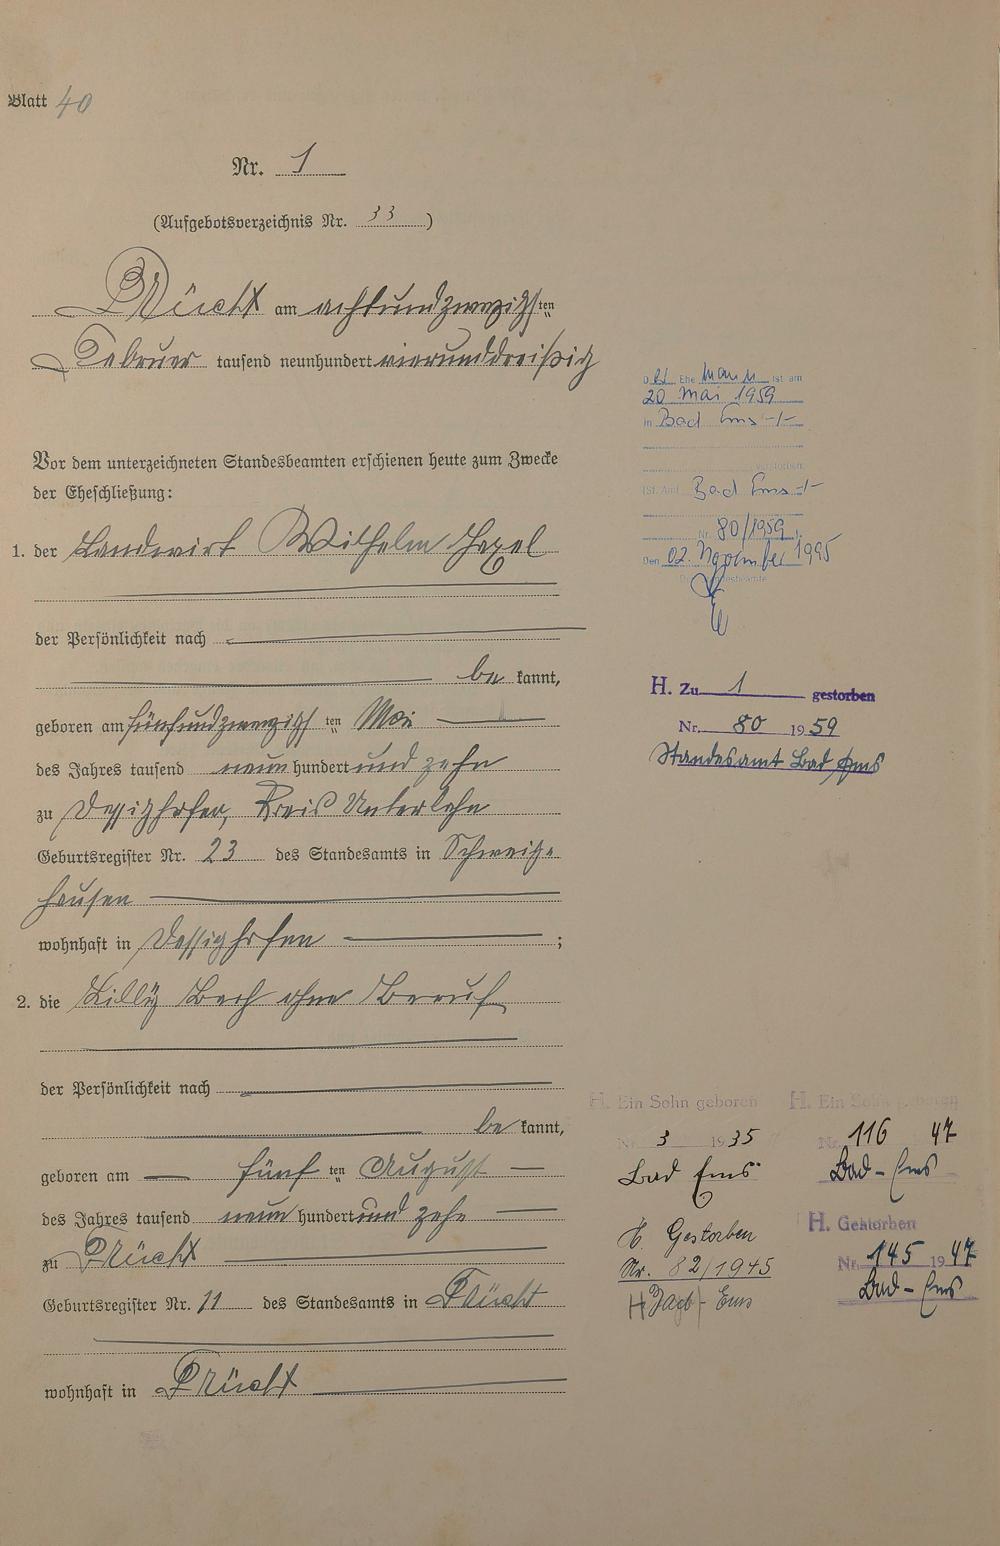 Blatt 40
Nr. 1
(Aufgebotsverzeichnis Nr. 33)
Frücht am achtundzwanzigsten
Februar tausend neunhundert vierunddreißig
Vor dem unterzeichneten Standesbeamten erschienen heute zum Zwecke
der Eheschließung:
1. der Landwirt Wilhelm Hexel
der Persönlichkeit nach
be kannt,
geboren am fünfundzwanzigsten Mai
des Jahres tausend neun hundert und zehn
zu Dessighofen, Kreis Unterlahn
Geburtsregister Nr. 23 des Standesamts in Schweig-
hausen
wohnhaft in Dessighofen ;
2. die Lilly Bach ohne Beruf
der Persönlichkeit nach
be kannt,
geboren am fünf ten August
des Jahres tausend neun hundert und zehn
zu Frücht
Geburtsregister Nr. 11 des Standesamts in Frücht
wohnhaft in Frücht
Der Ehemann ist am
20 Mai 1959
in Bad Ems -/-
verstorben
(St. Amt Bad Ems -/-
Nr. 80/1959).
Den 02. November 1995
Der Standesbeamte
H. Zu 1 gestorben
Nr. 80 1959
Standesamt Bad Ems
H. Ein Sohn geboren
Nr. 3 1935
Bad Ems
H. Gestorben
Nr. 82/1945
Ems
H. Ein Sohn geboren
Nr. 116 47
Bad-Ems
H. Gestorben
Nr. 145 1947
Bad-Ems